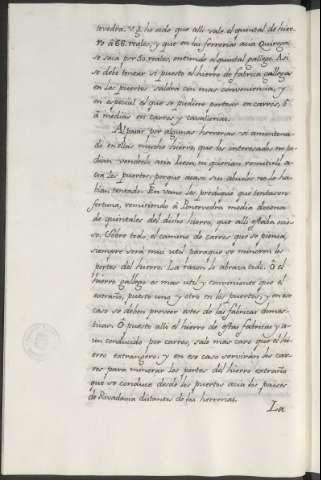 tevedra. Y he oido que alli vale el quintal de hier-
ro à 66. reales, y que en las ferrerias acia Quiroga
se saca por 50. reales, entiendo el quintal gallego. Asi
se debe tentear si puesto el hierro de fabrica gallega
en los puertos saldrá con mas conveniencia, y
en especial el que se pudiere portear en carros, ò
à medias en carros y cavallerias.
Al pasar por algunas herrerias vi amontona-
do en ellas mucho hierro, que los interesados no po-
dian venderle acia lucia, ni querian remitirle a-
cia los puertos, porque acaso sus abuelos no lo ha-
bian tentado. En vano les prediqué que tentasen
fortuna, remitiendo à Pontevedra media docena
de quintales del dicho hierro, que alli estaba ocio-
so. Sobre todo el camino de carros que se piensa,
siempre será mui util para que se minoren los
portes del hierro. La razon lo abraza todo. O el
hierro gallego es mas util y conveniente que el
extraño, puesto uno y otro en los puertos, y en ese
caso se deben proveer estos de las fabricas comar-
canas. O puesto alli el hierro de estas fabricas y a-
un conducido por carros, sale mas caro que el hi-
erro extrangero, y en ese caso servirán los car-
ros para minorar los portes del hierro extraño
que se conduce desde los puertos acia los paises
de Rivadavia distantes de las herrerias.
La